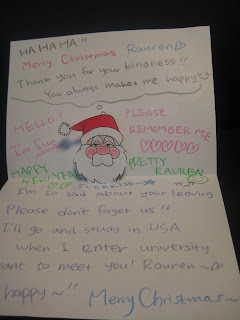 HAHAHA!!
Merry Christmas Rauren
Thank you for your kindness!!
You always makes me happy
HELLO
I'm Sue
PLEASE
REMEMBER ME
HAPPY
NEW YEAR
PRETTY
RAUREN
I'm so sad about your leaving
Please don't forget us!!
I'll go and study in USA
when I enter university
want to meet you! Rauren~
happy~!!
Merry Christmas~